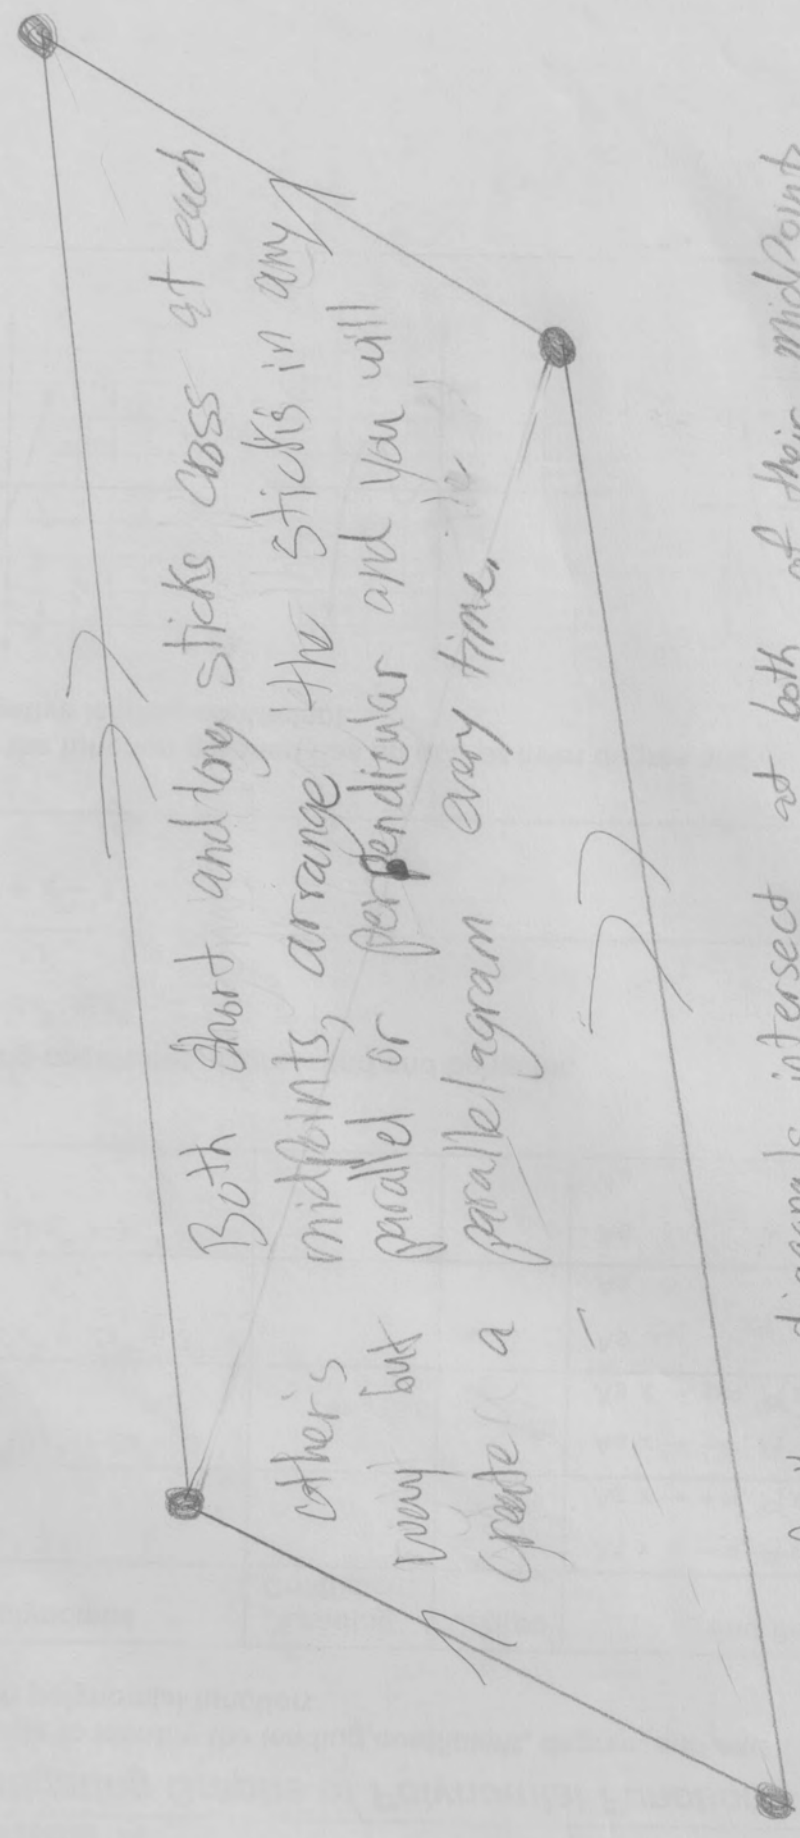 Both short and long sticks cross at each
others midpoints, arrange the sticks in any
way but parallel or perpendicular and you will
create a parallelagram every time.
diagonals intersect at both of their midpoints